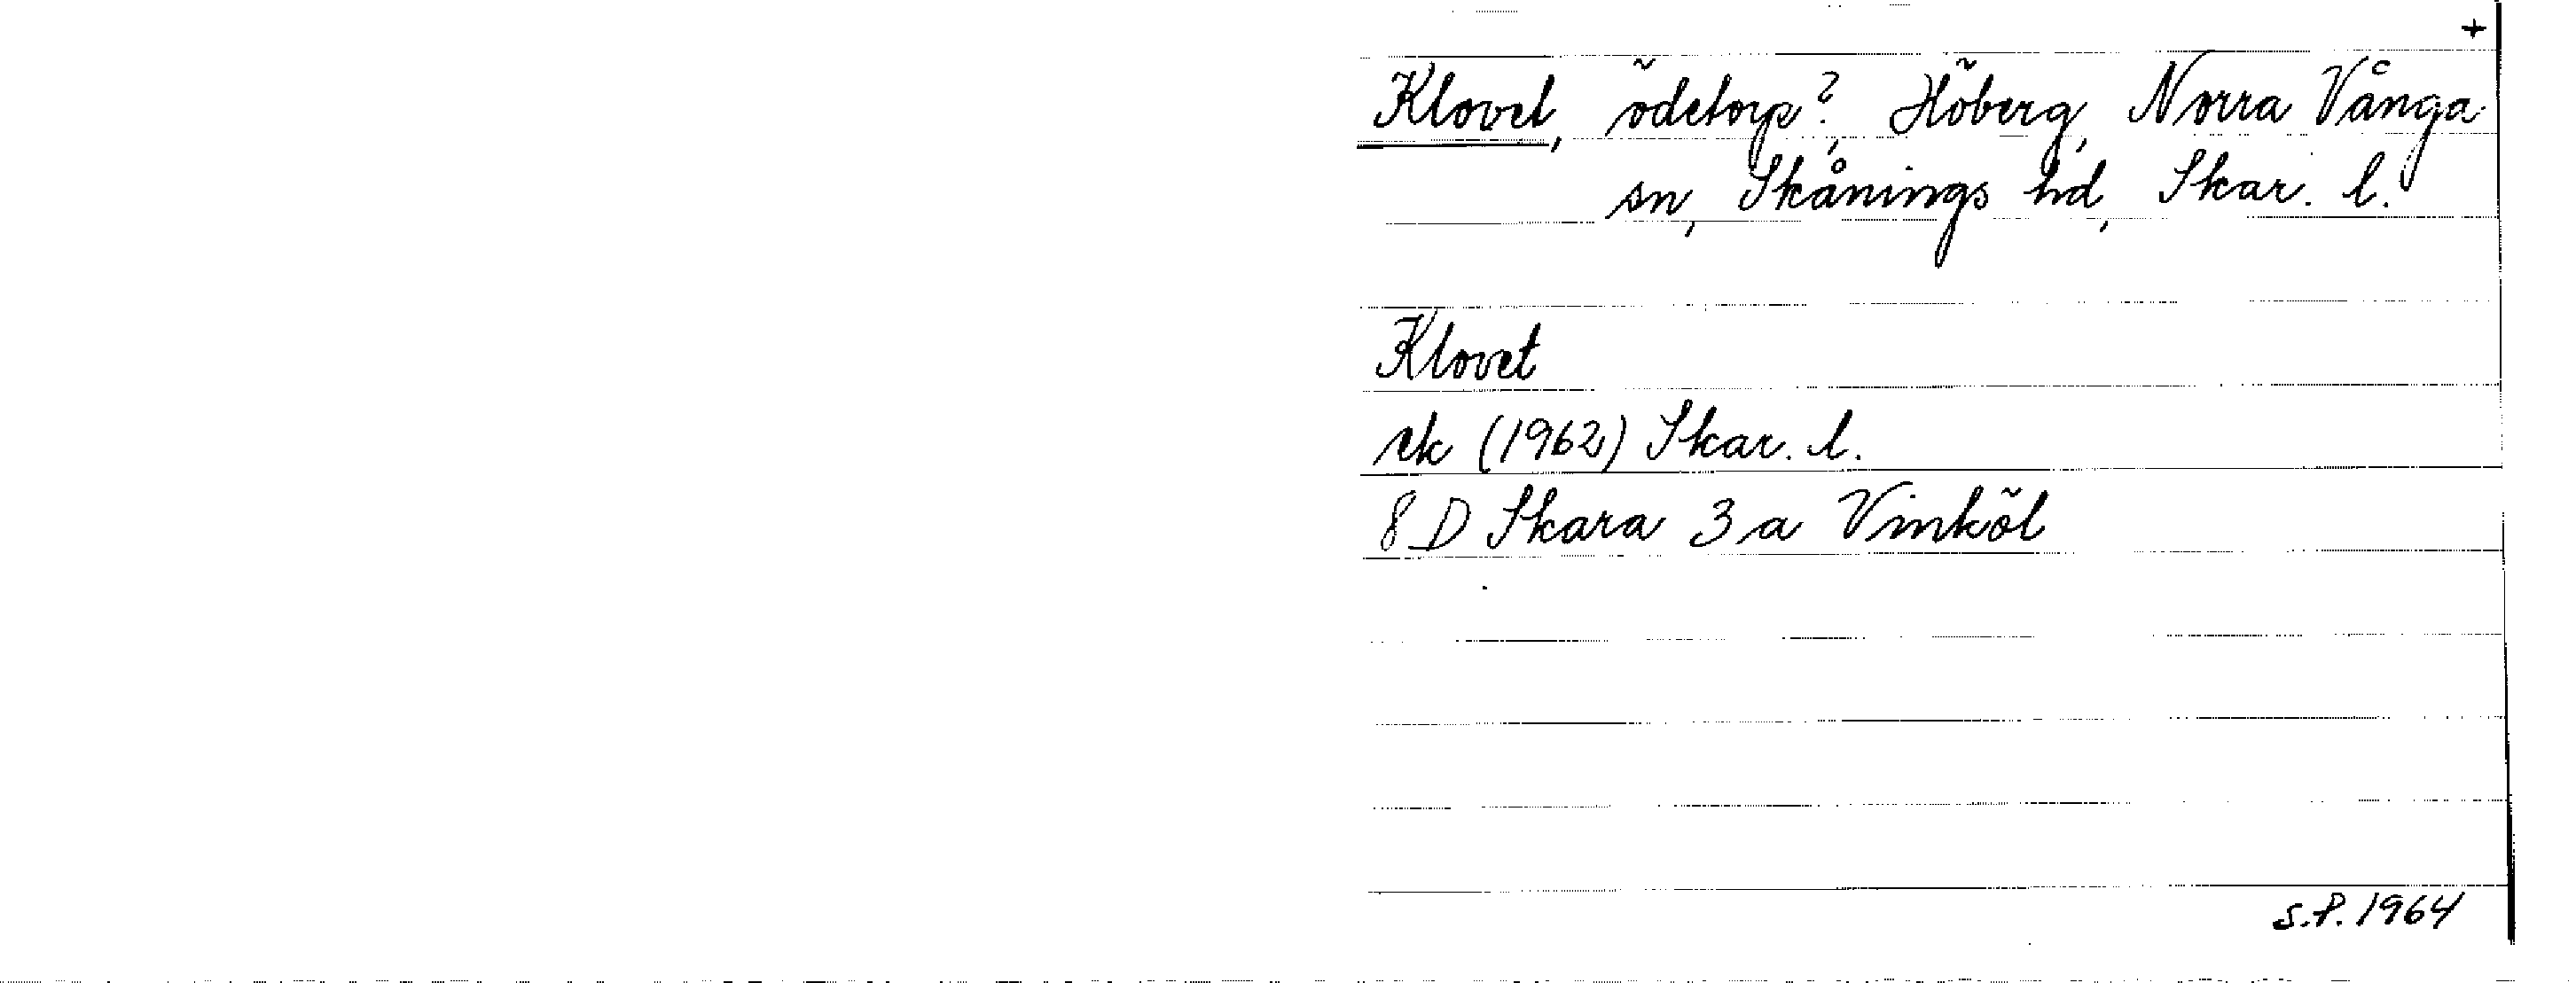 +
Klovet, ödetorp?, Höberg, Norra Vånga
sn, Skånings hd, Skar. l.
Klovet
ek (1962) Skar. l.
8 D Skara 3 a Vinköl
S.P. 1964